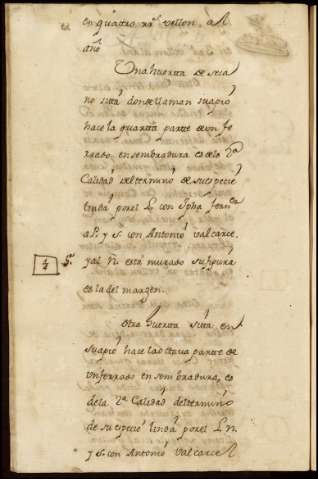 en quatro rr.s vellon, al
año
Una huerta de seca
no sita donde llaman suapio
hace la quarta parte de un fe
rrado, en sembradura es de la 2.a
Calidad del termino de su especie
linda por el L con
a P. y S. con Antonio Valcarce,
y al N. está murado su figura
es la del margen.
5.
Otra huerta sita en
suapio hace la octava parte de
un ferrado en sembradura, es
de la 2.a Calidad del termino
de su especie linda por el L. N.
y S. con Antonio Valcarcel